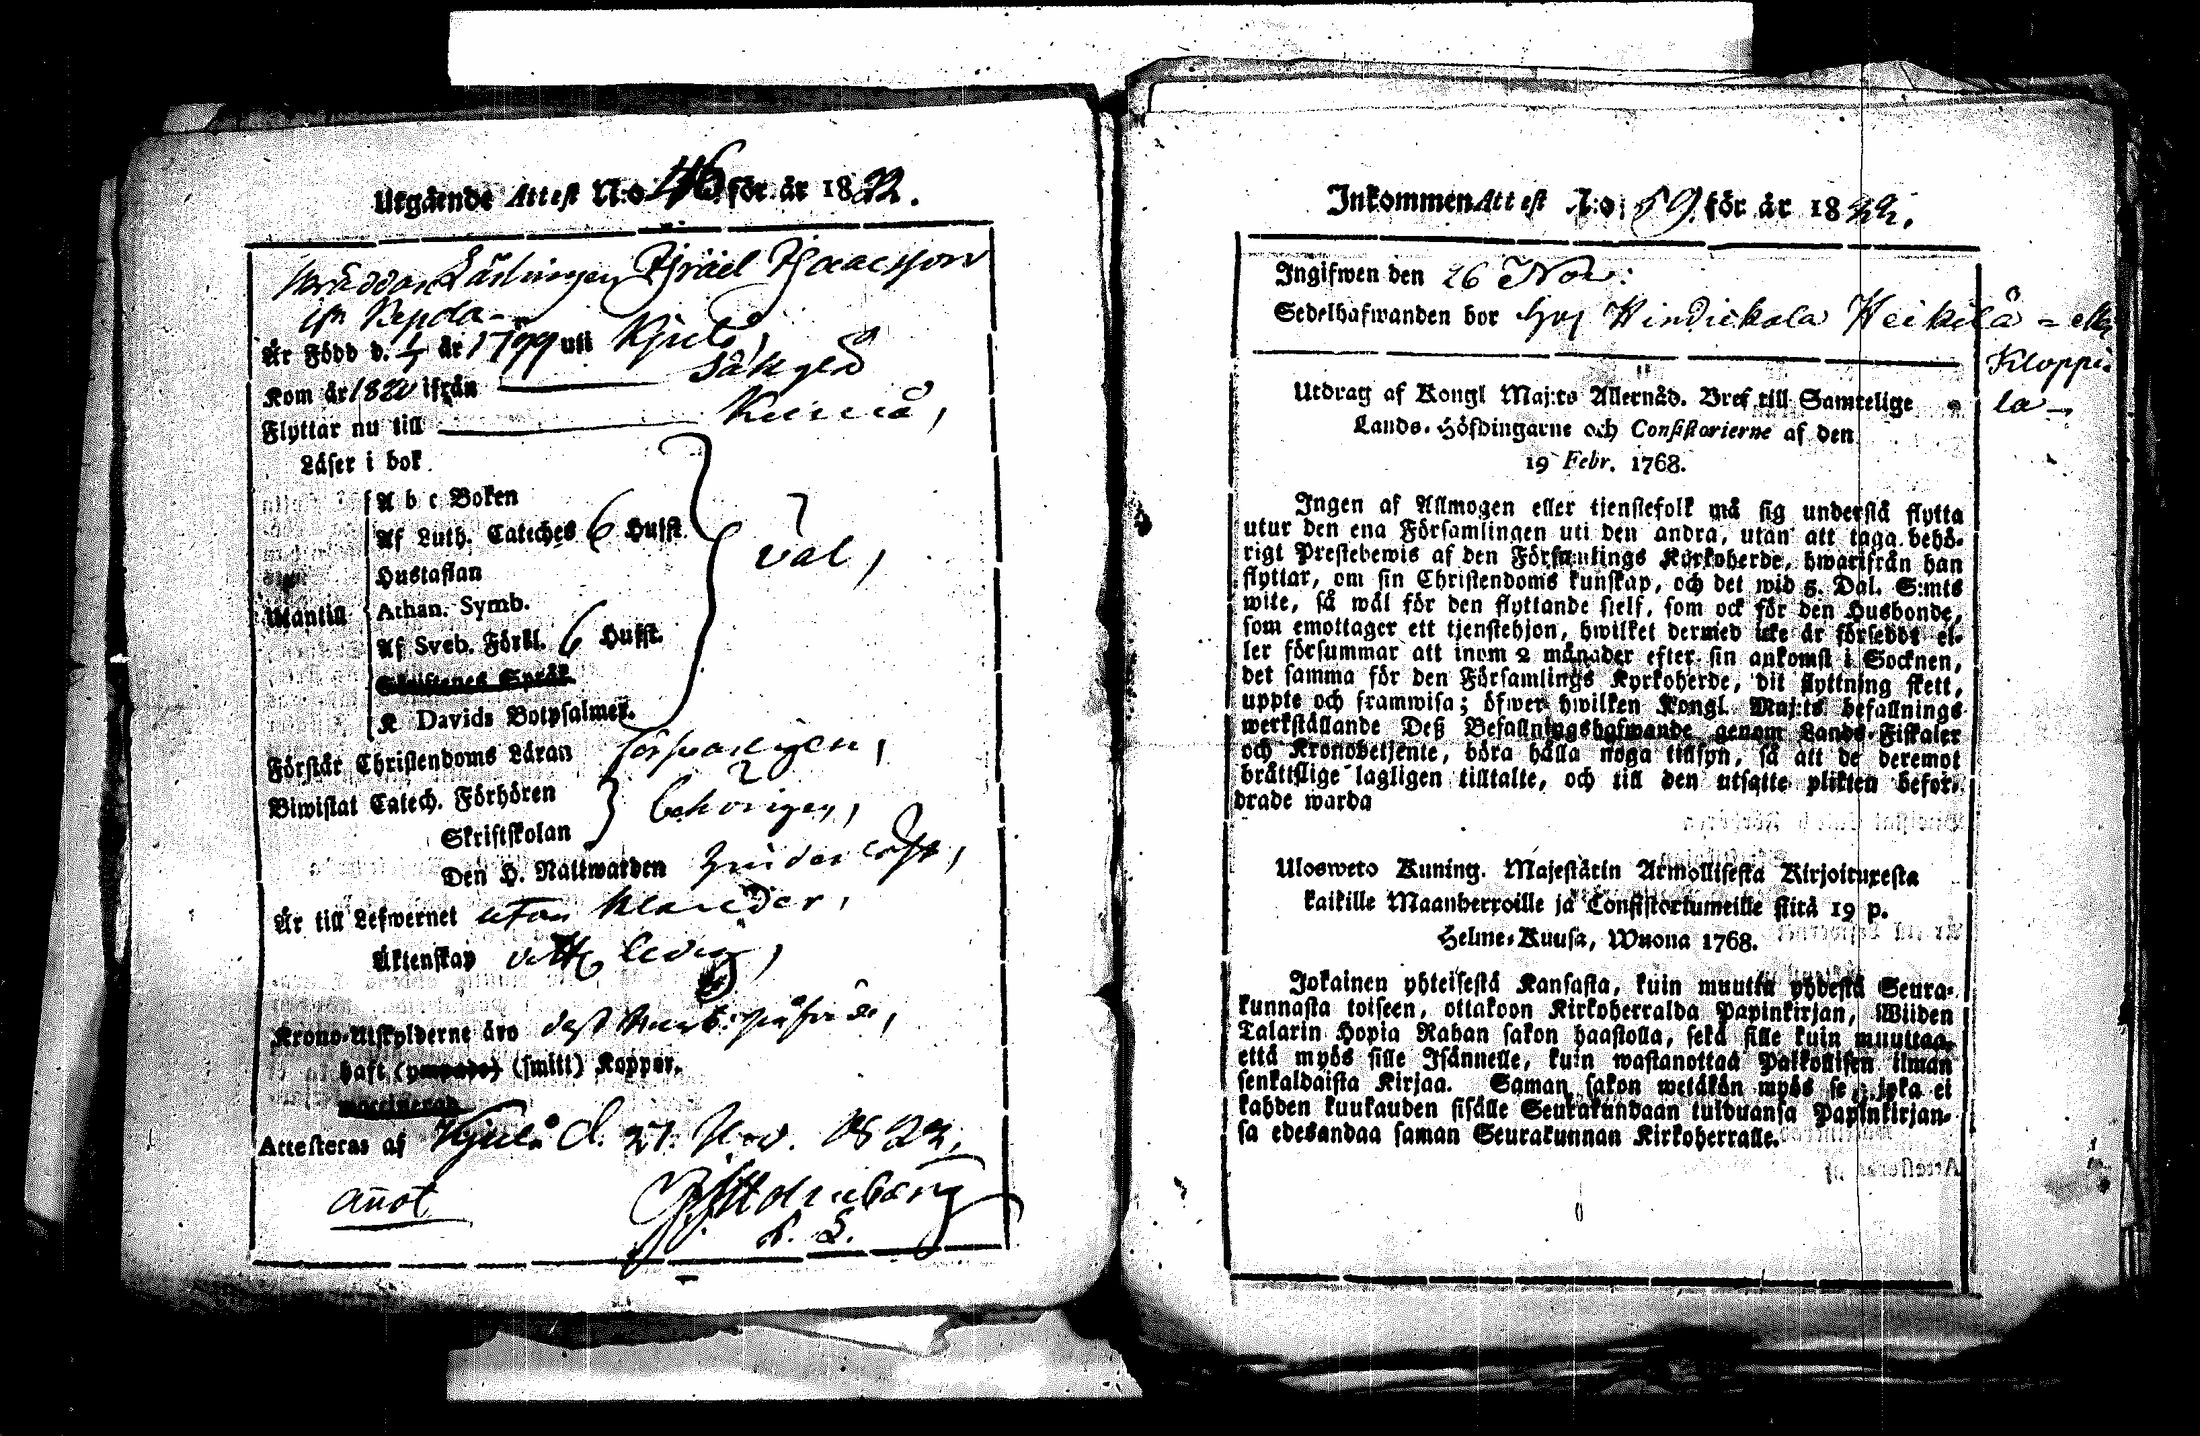 Utgående Attest N:o 46 för år 1822.
Lärlingen Isräel Isaacsson
ifn Nepola
Är Född d. år 1799 uti Kjulo,
Kom år 1820 ifrån Säkylä
Flyttar nu till Kumo,
Läser i bok
A b c Boken
Af Luth. Cateches 6 Hufst.
Hustaflan
Utantill
Athan. Symb.
Af Sveb. Förkl. 6 Hufst.
Skriftenes Språk
K Davids Botpsalmer.
väl,
Förstår Christendoms Läran försvarligen,
Biwistat Catech. Förhören
Skriftskolan
behörigen,
Den H. Nattwarden
Är till Lefwernet utan klander,
Äktenskap ledig,
Krono-Utskylderne äro
haft (ympade) (smitt) Koppor.
vaccinerad
Attesteras af Kjulo d. 21. Nov. 1822,
anot
Inkommen Attest N:o 59 för år 1822.
Ingifwen den 26 Nov:
Sedelhafwanden bor hos Hindickala Heikilä - eller
Kloppi-
la -
Utdrag af Kongl Maj:ts Allernåd. Bref till Samtelige
Lands-Höfdingarne och Consistorierne af den
19 Febr. 1768.
Ingen af Allmogen eller tjenstefolk må sig understå flytta
utur den ena Församlingen uti den andra, utan att taga behö-
rigt Prestebewis af den Församlings Kyrkoherde, hwarifrån han
flyttar, om sin Christendoms kunskap, och det wid 5. Dal. S:mts
wite, så wäl för den flyttande sielf, som ock för den Husbonde,
som emottager ett tjenstehjon, hwilket dermed icke är försedbt el-
ler försummar att inom 2 månader efter sin ankomst i Socknen,
det samma för den Församlings Kyrkoherde, dit flyttning skett,
uppte och framwisa; öfwer hwilken Kongl. Maj:ts befallnings
werkställande Deß Befallningshafwande genom Lands-Fiskaler
och Kronobetjente, böra hålla noga tillsyn, så att de deremot
bråttslige lagligen tilltalte, och till den utsatte plikten befor-
drade warda
Ulosweto Kuning. Majestätin Armollisesta Kirjoituxesta
kaikille Maanherroille ja Consistoriumeille siitä 19 p.
Helme-Kuusa, Wuona 1768.
Jokainen yhteisestä Kansasta, kuin muutta yhdestä Seura-
kunnasta toiseen, ottakoon Kirkoherralda Papinkirjan, Wiiden
Talarin Hopia Rahan sakon haastolla, sekä sille kuin muuttaa,
että myös sille Isännelle, kuin wastanottaa Palkollisen ilman
senkaldaista Kirjaa. Saman sakon wetäkön myös se, joka ei
kahden kuukauden sisälle Seurakundaan tulduansa Papinkirjan-
sa edesandaa saman Seurakunnan Kirkoherralle.